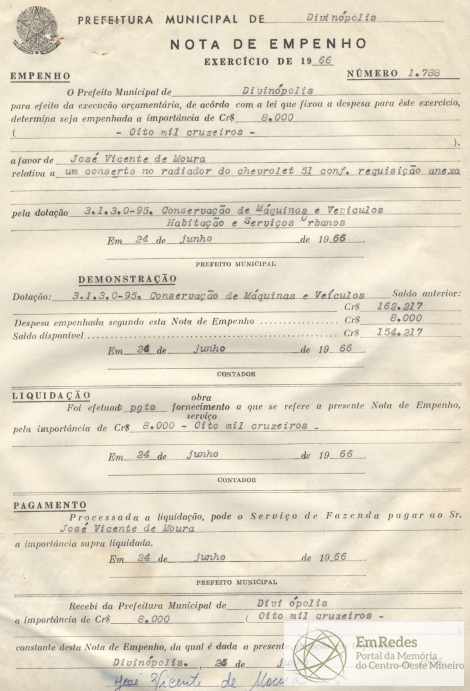 PREFEITURA MUNICIPAL DE Divinópolis
NOTA DE EMPENHO
EXERCÍCIO DE 1966
EMPENHO NÚMERO 1.788
O Prefeito Municipal de Divinópolis
para efeito da execução orçamentária, de acôrdo com a lei que fixou a despesa para êste exercício,
determina seja empenhada a importância de Cr$ 8.000
( - Oito mil cruzeiros -
),
a favor de José Vicente de Moura
relativa a um conserto no radiador do chevrolet 51 conf. requisição anexa
pela dotação 3.1.3.0-95. Conservação de Máquinas e Veículos
Habitação e Serviços Urbanos
Em 24 de junho de 1966
PREFEITO MUNICIPAL
DEMONSTRAÇÃO
Dotação: 3.1.3.0-95. Conservação de Máquinas e Veículos Saldo anterior:
Cr$ 162.217
Despesa empenhada segundo esta Nota de Empenho ................ Cr$ 8.000
Saldo disponível ................ Cr$ 154.217
Em 24 de junho de 1966.
CONTADOR
LIQUIDAÇÃO obra
Foi efetuado pgto fornecimento a que se refere a presente Nota de Empenho,
serviço
pela importância de Cr$ 8.000 - Oito mil cruzeiros -
Em 24 de junho de 1966.
CONTADOR
PAGAMENTO
Processada a liquidação, pode o Serviço de Fazenda pagar ao Sr.
José Vicente de Moura
a importância supra liquidada.
Em 24 de junho de 1966.
PREFEITO MUNICIPAL
Recebi da Prefeitura Municipal de Divi ópolis
a importância de Cr$ 8.000 ( Oito mil cruzeiros -
constante desta Nota de Empenho, da qual é dada a presente
Divinópolis. , 24 de
José Vicente de Moura
EmRedes
Portal da Memória
do Centro-Oeste Mineiro